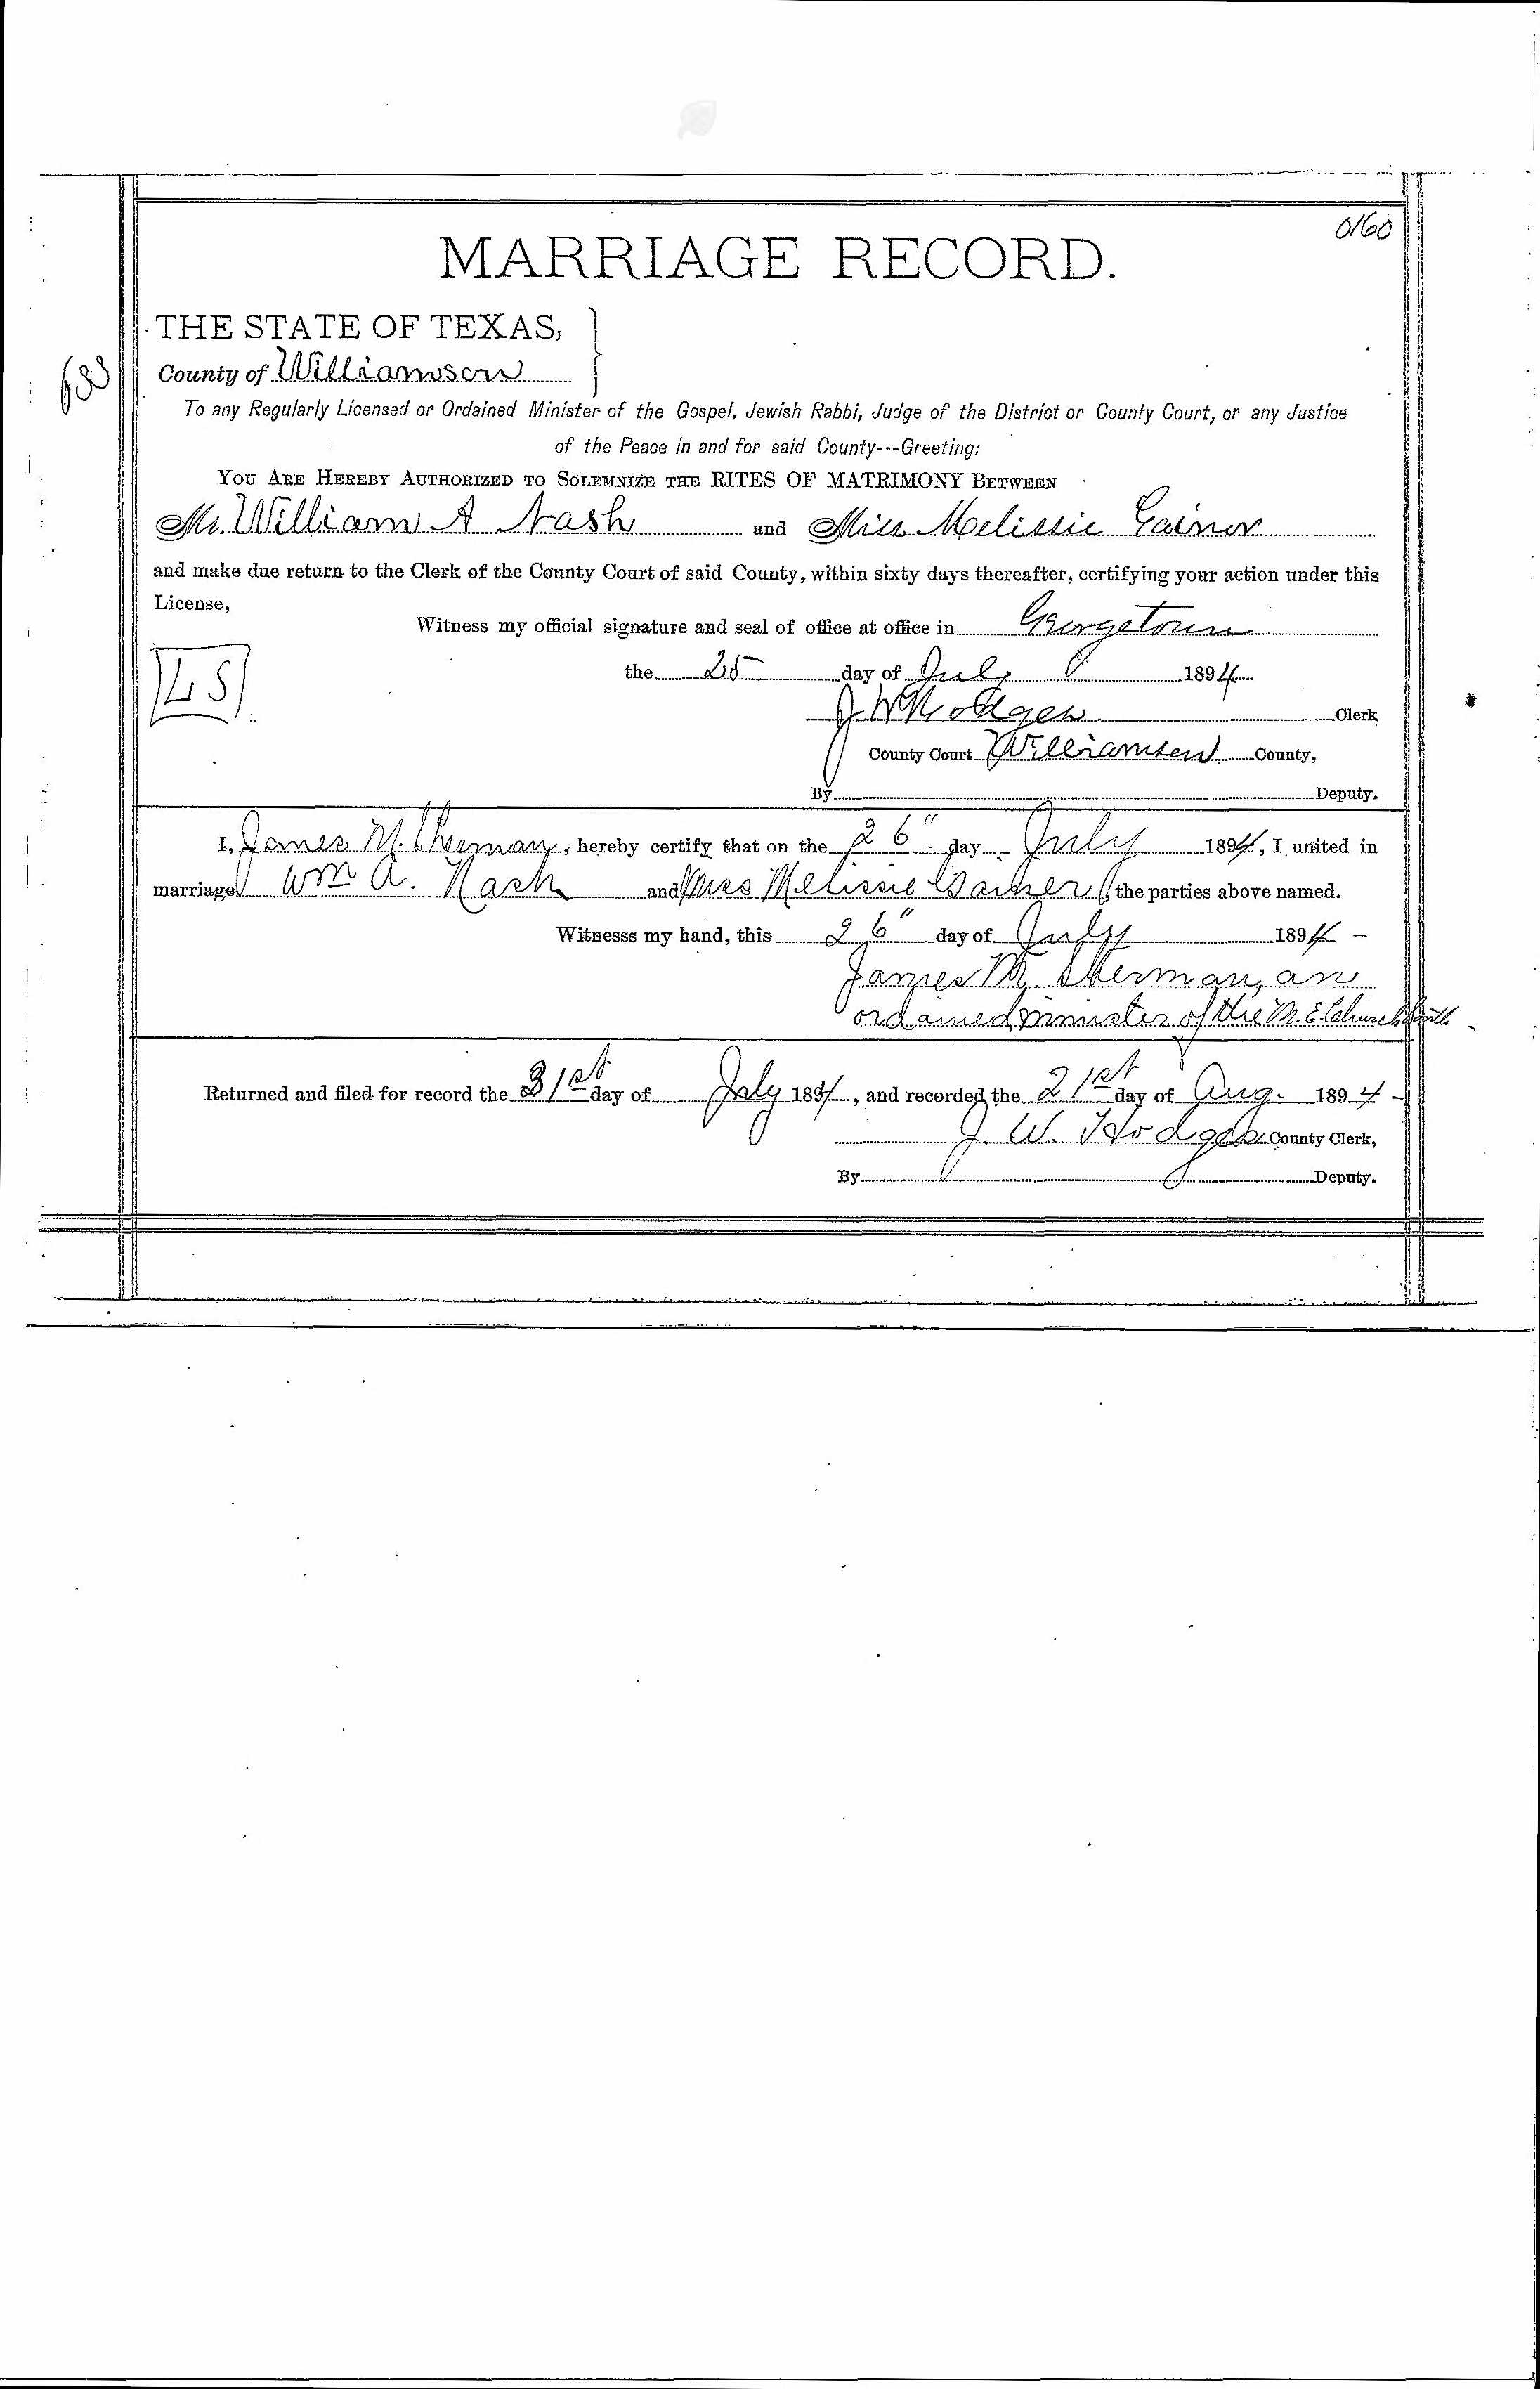 0160
MARRIAGE RECORD.
THE STATE OF TEXAS,
County of Williamson
633
To any Regularly Licensed or Ordained Minister of the Gospel, Jewish Rabbi, Judge of the District or County Court, or any Justice
of the Peace in and for said County---Greeting:
YOU ARE HEREBY AUTHORIZED TO SOLEMNIZE THE RITES OF MATRIMONY BETWEEN
Mr. William A Nash and Miss Melissie Gainor
and make due return to the Clerk of the County Court of said County, within sixty days thereafter, certifying your action under this
License,
Witness my official signature and seal of office at office in Georgetown
LS
the 25 day of July 1894
J. W. Hodges Clerk
County Court Williamson County,
By Deputy.
I, James M. Sherman, hereby certify that on the 26" day July 1894, I united in
marriage Wm A. Nash and Miss Melissie Gainer, the parties above named.
Witnesss my hand, this 26" day of July 1894 -
James M. Sherman, an
ordained minister of the M. E. Church South
Returned and filed for record the 31st day of July 1894, and recorded the 21st day of Aug. 1894 -
J. W. Hodges County Clerk,
By Deputy.